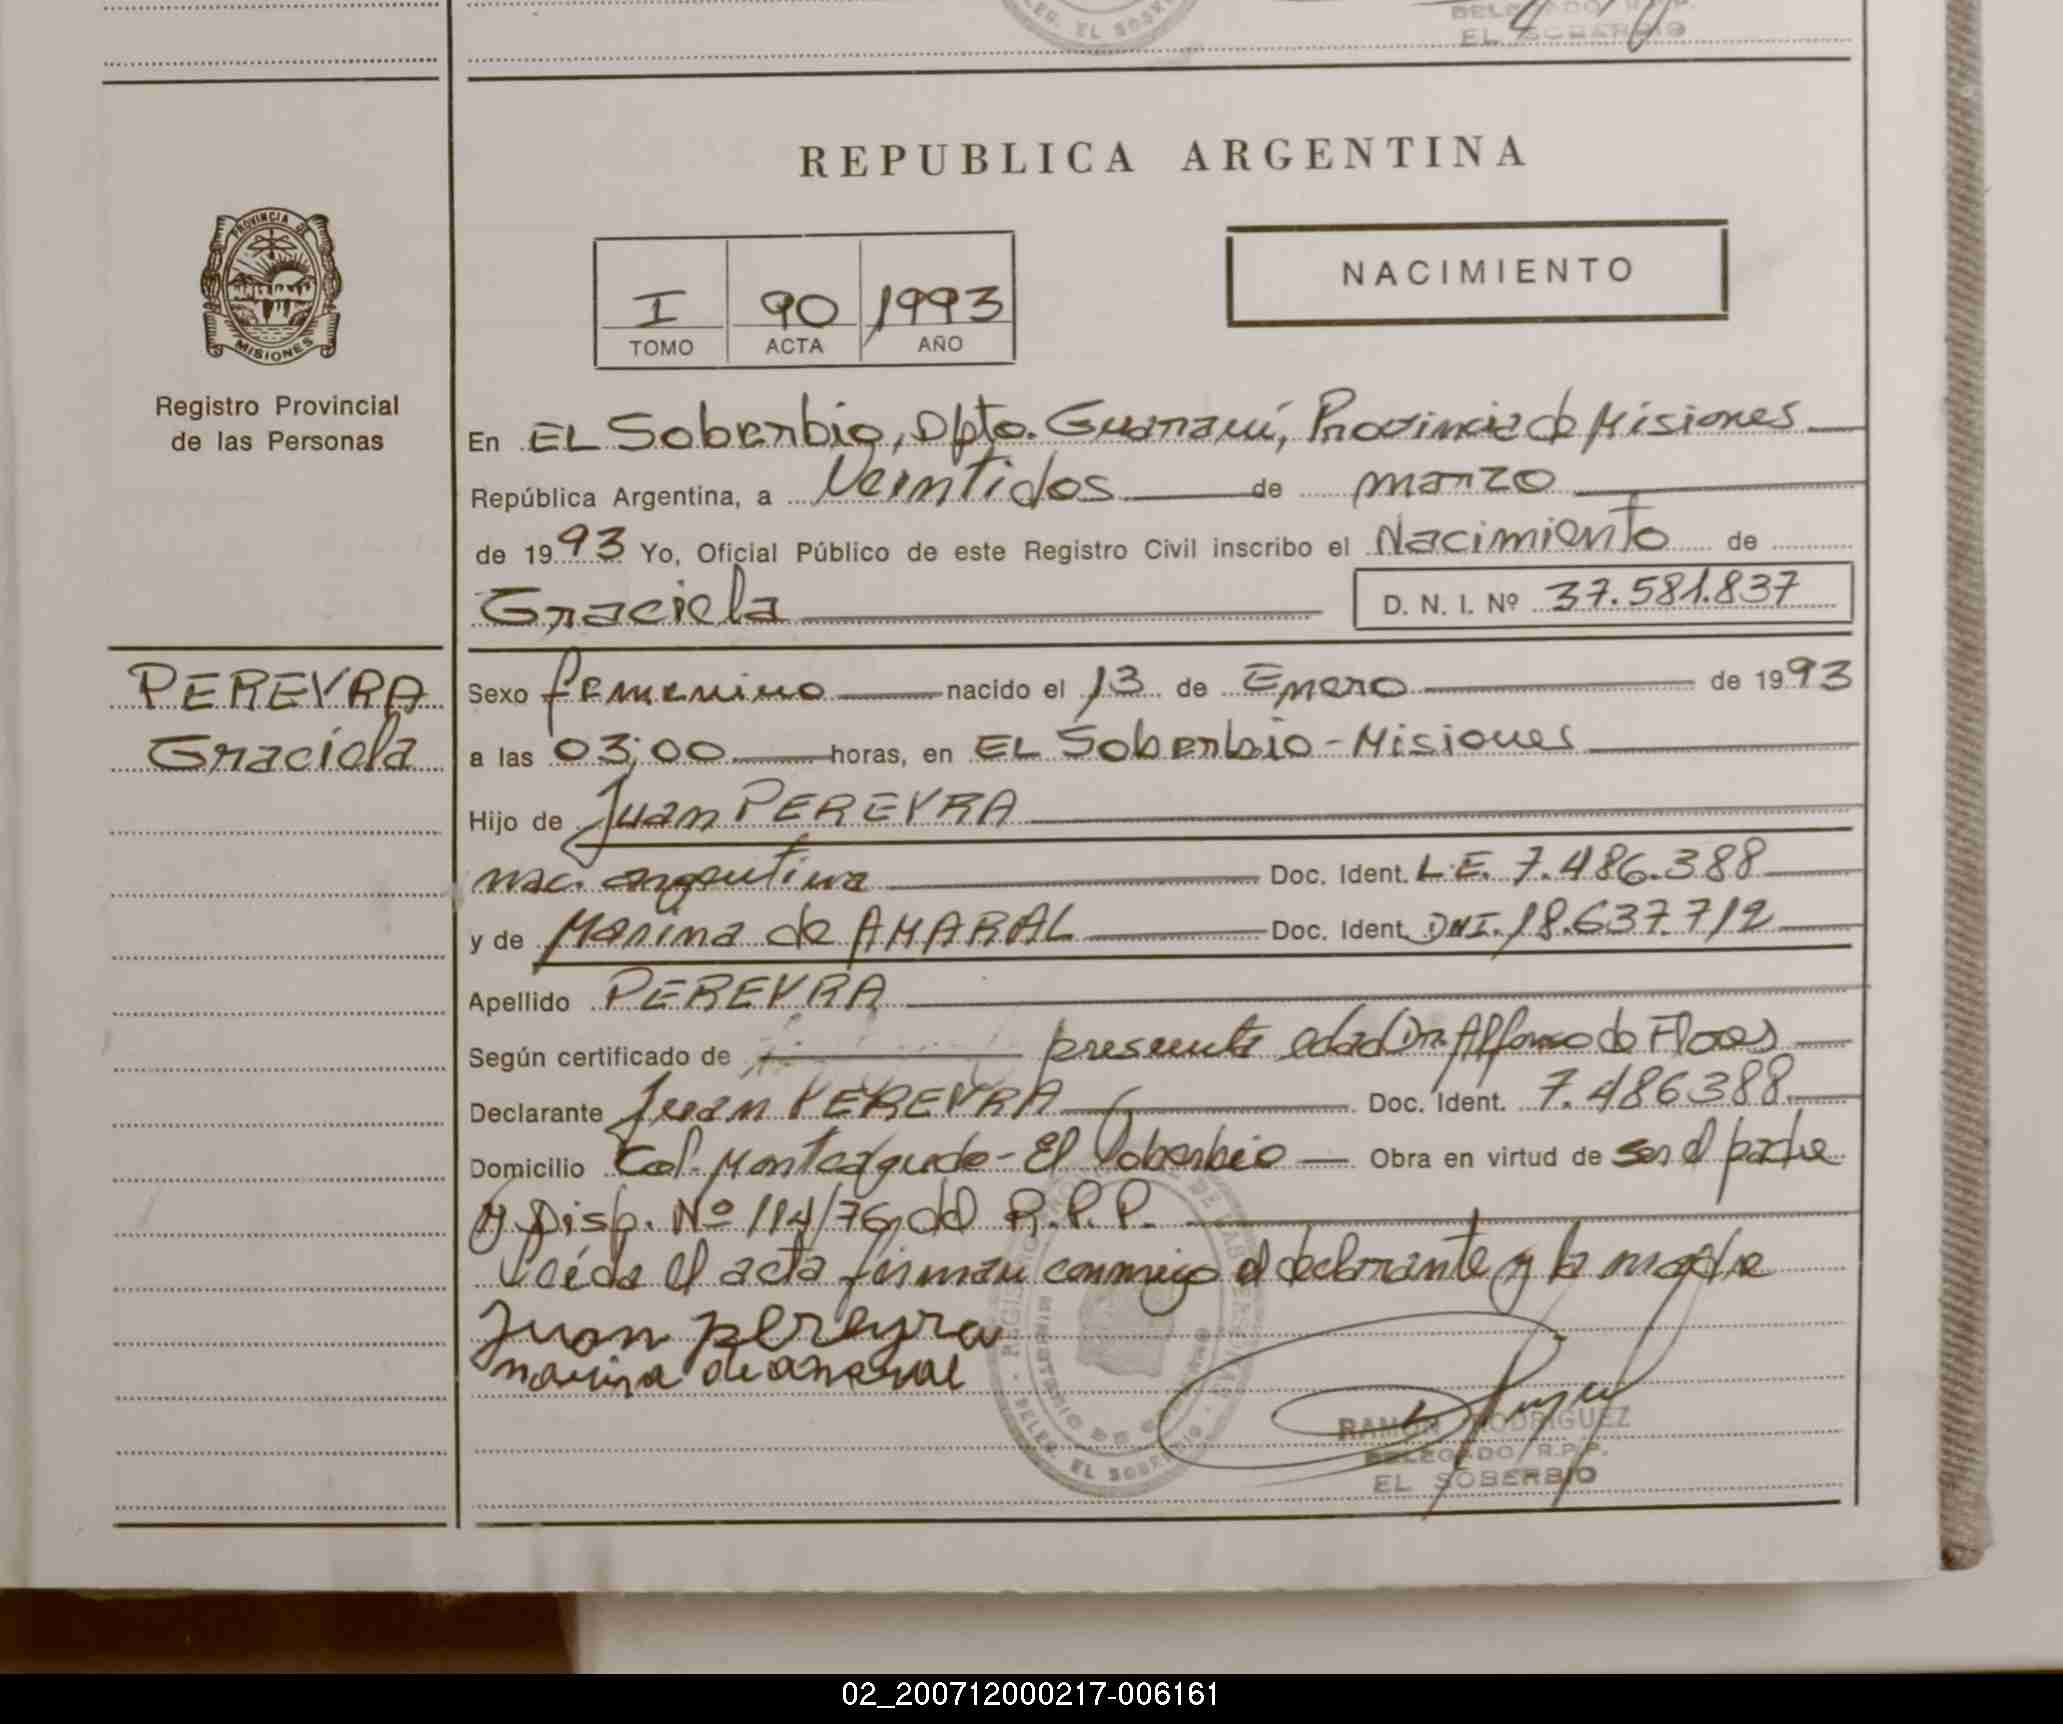 DELEGADO R.P.P.
EL SOBERBIO
DELEG. EL SOBERBIO
REPUBLICA ARGENTINA
PROVINCIA DE
MISIONES
Registro Provincial
de las Personas
I 90 1993
TOMO ACTA AÑO
NACIMIENTO
En EL Soberbio, Dpto. Guaraní, Provincia de Misiones
República Argentina, a Veintidos de marzo
de 1993 Yo, Oficial Público de este Registro Civil inscribo el Nacimiento de
Graciela D. N. I. Nº 37.581.837
PEREYRA
Graciela
Sexo femenino nacido el 13 de Enero de 1993
a las 03:00 horas, en EL Soberbio - Misiones
Hijo de Juan PEREYRA
nac. argentina Doc. Ident. L.E. 7.486.388
y de Marina de AMARAL Doc. Ident. DNI. 18.637.712
Apellido PEREYRA
Según certificado de presunta edad Dr. Alfonso de
Declarante Juan PEREYRA Doc. Ident. 7.486388
Domicilio Col. Monteagudo - El Soberbio Obra en virtud de ser el padre
y Disp. Nº 114/76, del R.P.P.
Leída el acta firman conmigo el declarante y la madre
Juan pereyra
marina de amaral
REGISTRO PROVINCIAL DE LAS PERSONAS
MINISTERIO DE GOBIERNO
DELEG. EL SOBERBIO
RAMON RODRIGUEZ
DELEGADO R.P.P.
EL SOBERBIO
02_200712000217-006161